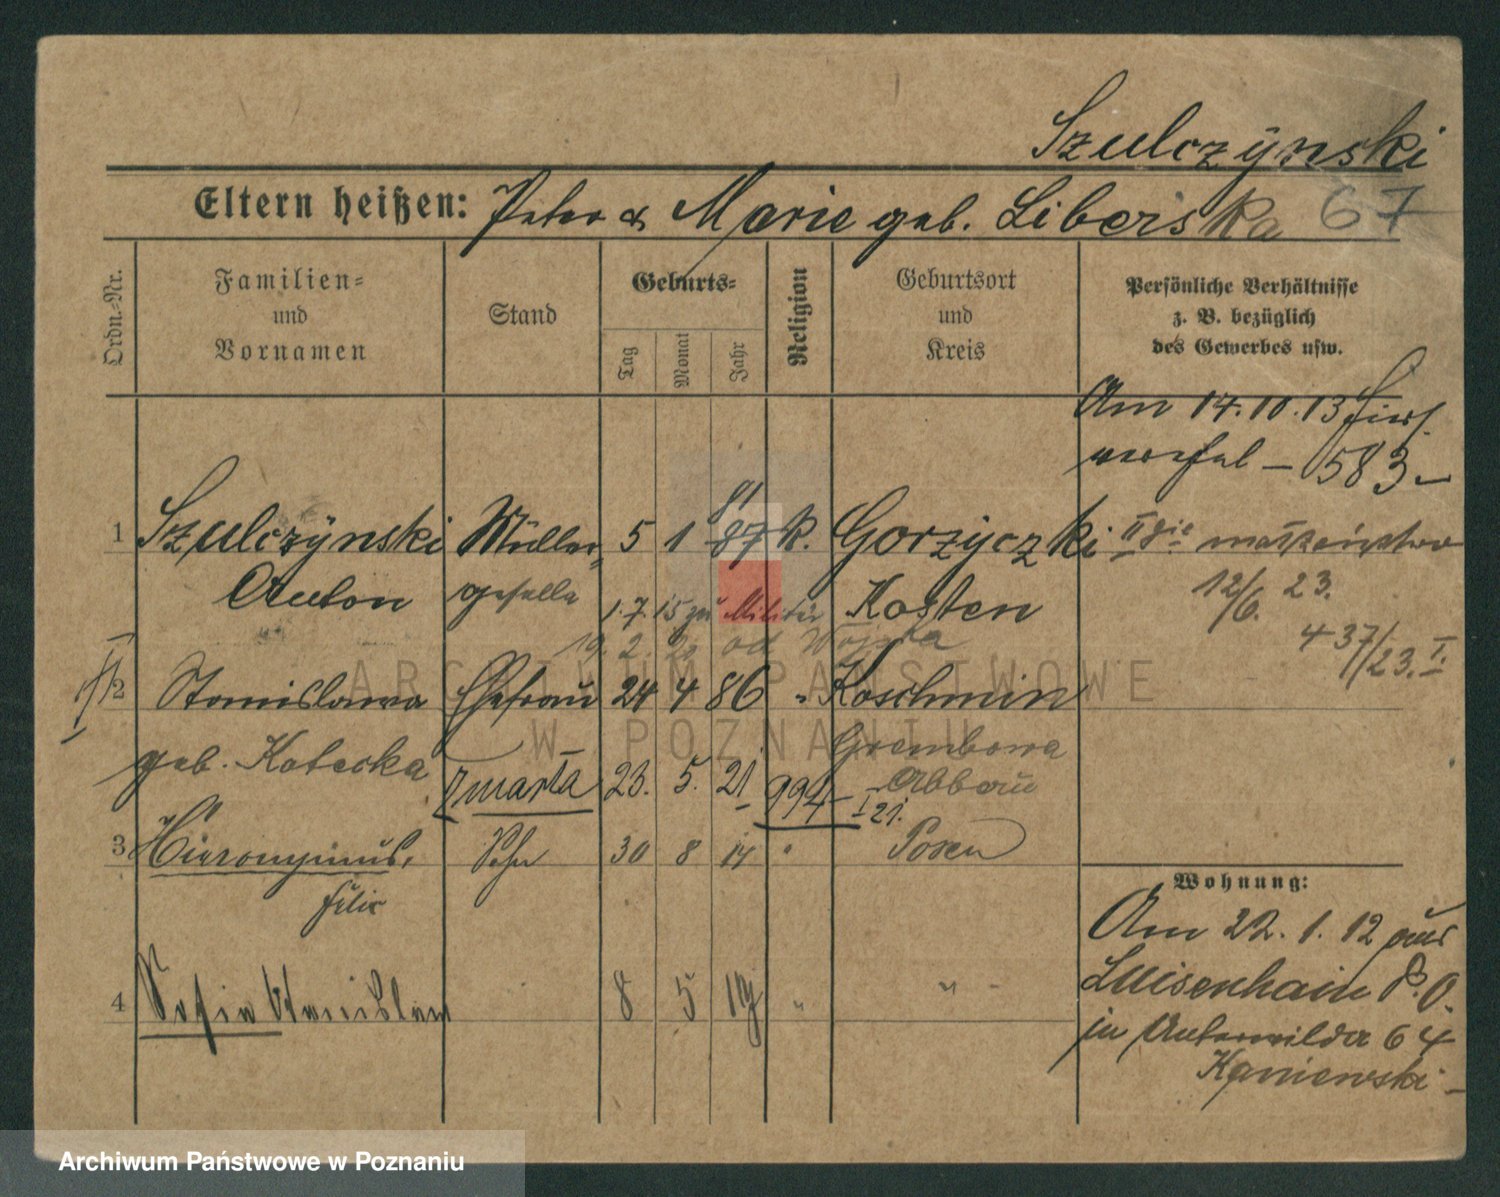 Szulczynski
Eltern heißen: Peter & Marie geb. Liberska 67
Ordn.-Nr.
Familien=
und
Vornamen
Stand
Geburts=
Tag
Monat
Jahr
Religion
Geburtsort
und
Kreis
Persönliche Verhältnisse
z. B. bezüglich
des Gewerbes usw.
Am 14.10.13
583
81
1 Szulczynski Müller 5 1 87 k. Gorzyczki
Anton geselle Kosten
1.7.15 zu Militär
19. 2. 20 od Wojska
IIgie małżeństwo
12/6. 23.
437/23. I.
2 Stanislawa Ehefrau 24 4 86 " Koschmin
geb. Kotecka Grembowa
Abbau
zmarła 23. 5. 21 994 I 21.
3 Hieronymus, Sohn 30 8 14 " Posen
Felix
4 Sofia Stanislawa 8 5 19 " "
Wohnung:
Am 22. 1. 12 aus
Luisenhain P. O.
in Unterwilda 64
Kaniewski
ARCHIWUM PAŃSTWOWE
W POZNANIU
Archiwum Państwowe w Poznaniu